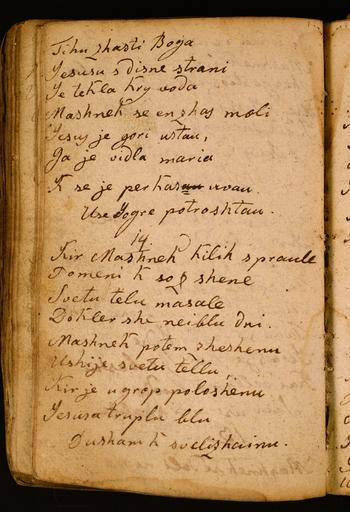 Tihu zhasti Boga
Jesusu s disne strani
Je tekla kry voda
Mashnek se en zhas moli
Jesus je gori ustau,
Ga je vidla maria
K se je perkasau uvau.
Use Jogre potroshtau.
14.
Kir Mashnek kilih spraule
Pomeni k so g shene
Svetu telu masale
Dokler she neiblu dni.
Mashnek potem sheshenu
Ushije svetu tellu,
Kir je ugrop poloshenu
Jesusa truplu blu
Dusham k svelizhainu.